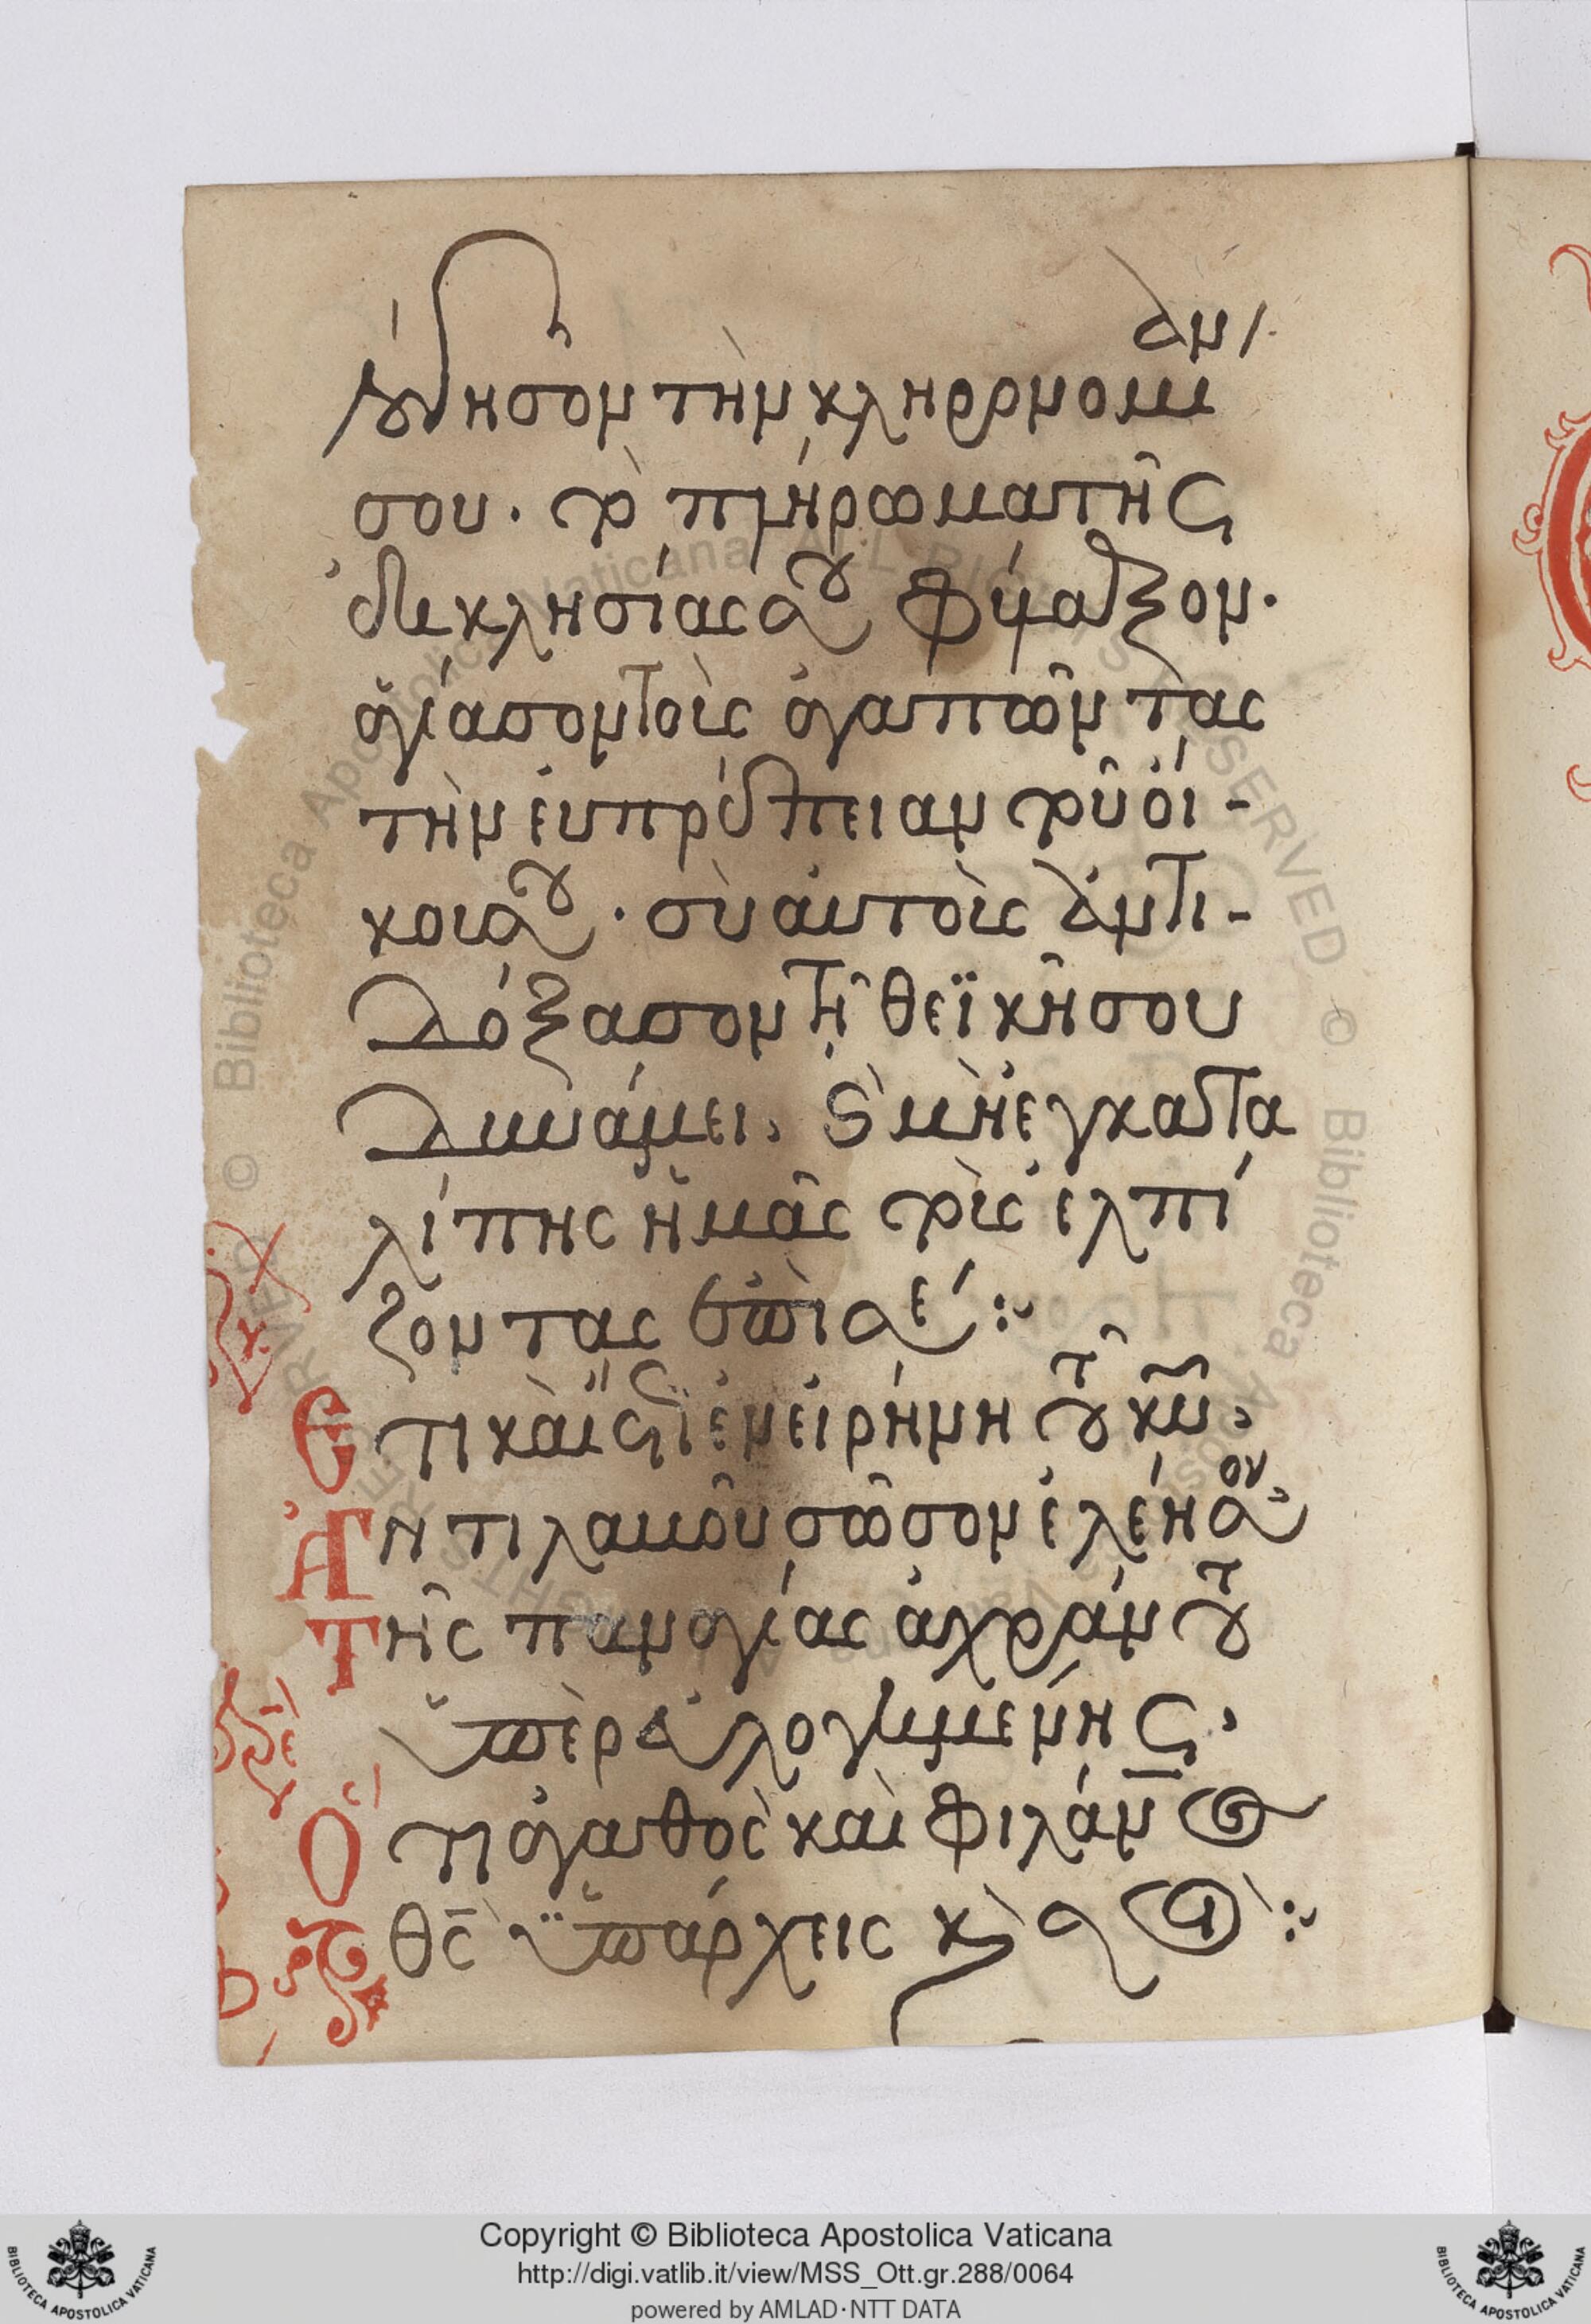 αν
εὐλόγησον τὴν κληρονομί
σου· τὸ πλήρωμα τῆς
ἐκκλησίας σου φύλαξον·
ἁγίασον τοὺς ἀγαπῶντας
τὴν εὐπρέπειαν τοῦ οἴ-
κου σου· σὺ αὐτοὺς ἀντι-
δόξασον τῇ θεϊκῇ σου
δυνάμει, καὶ μὴ ἐγκατα
λίπῃς ἡμᾶς τοὺς ἐλπί
ζοντας ἐπὶ σέ:
Ἔτι καὶ ἔτι ἐν εἰρήνῃ τοῦ κυ,
Ἀντιλαβοῦ σῶσον ἐλέησον,
Τῆς παναγίας ἀχράντου
ὑπερευλογημένης,
Ὅτι ἀγαθὸς καὶ φιλάνος
θς ὑπάρχεις καὶ σοὶ:
Copyright © Biblioteca Apostolica Vaticana
http://digi.vatlib.it/view/MSS_Ott.gr.288/0064
powered by AMLAD·NTT DATA
BIBLIOTECA APOSTOLICA VATICANA
BIBLIOTECA APOSTOLICA VATICANA